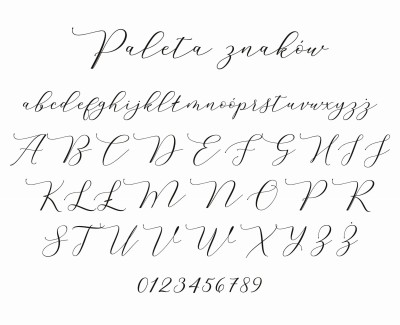 Paleta znaków
abcdefghijklłmnoóprstuvwxyzżź
ABCDEFGHIJ
KLŁMNOPR
STUVWXYZŻ
0123456789